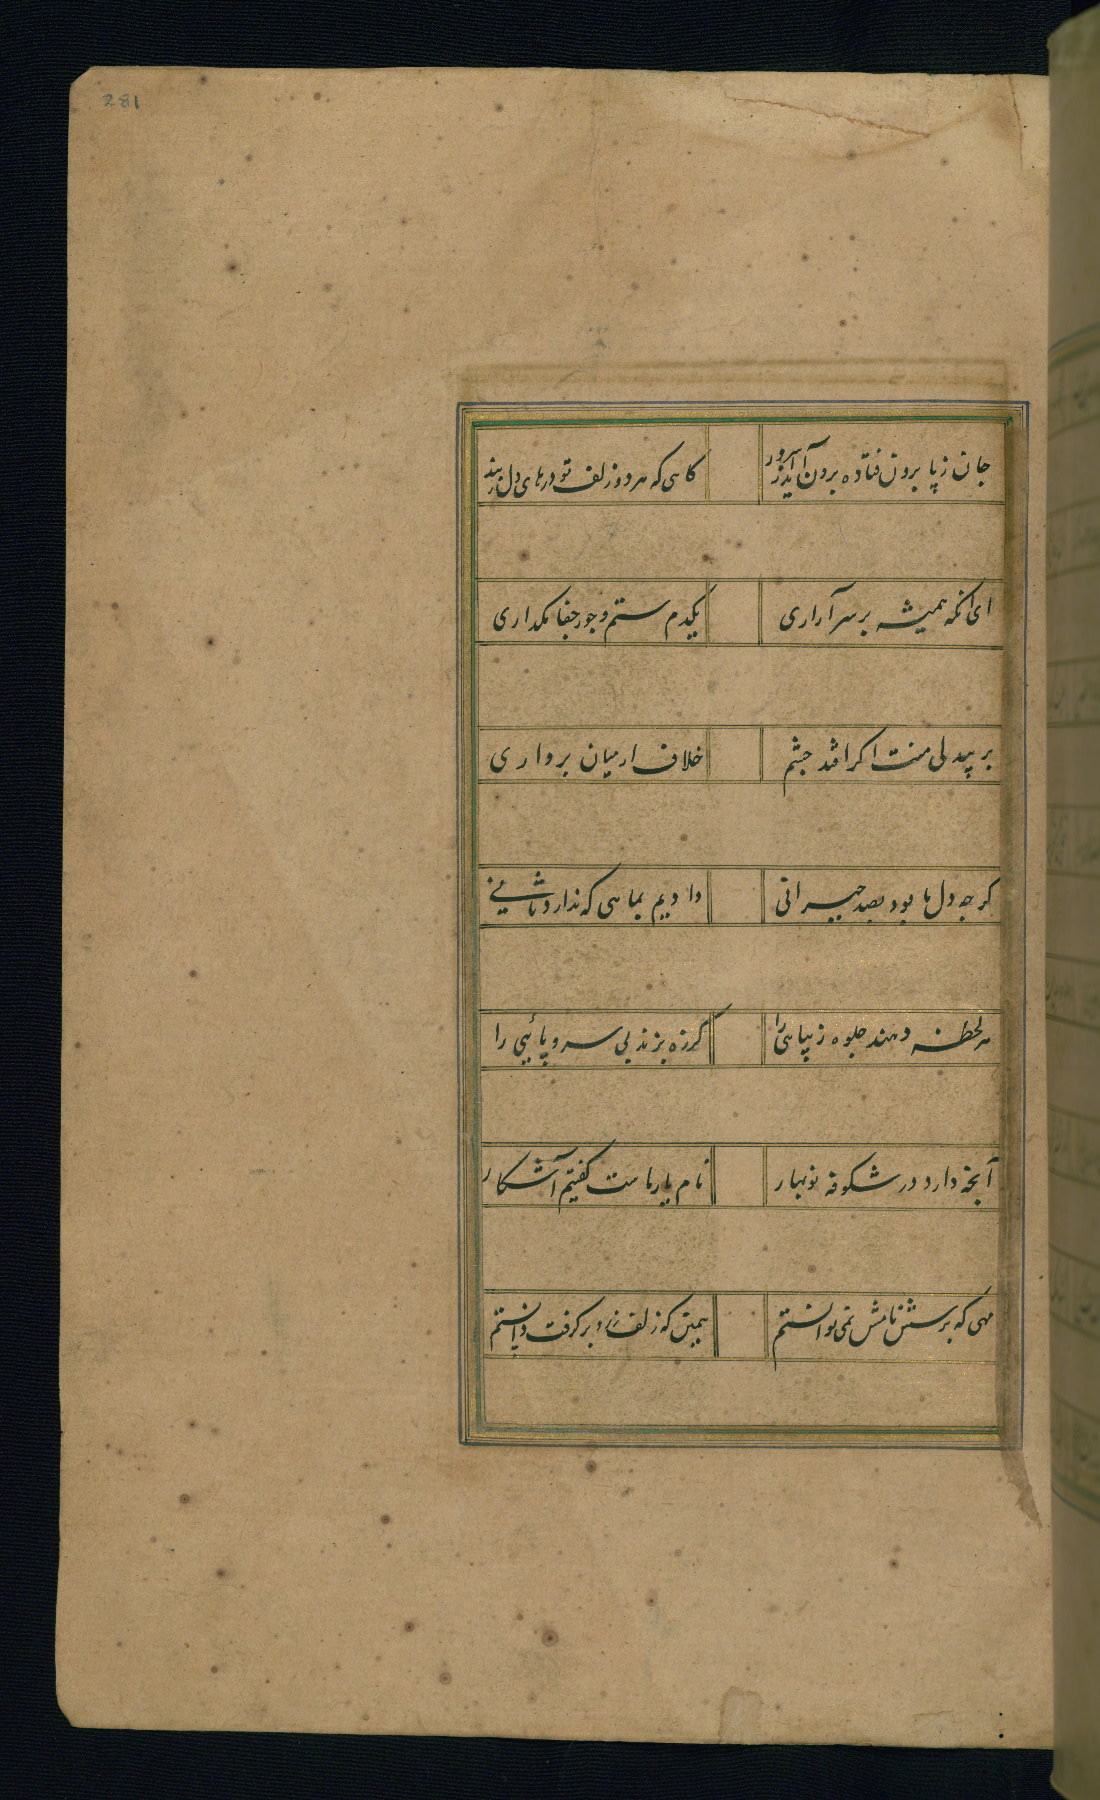 281
جان زپا برون فتاده برون آید ز سرور
کاهی که هر دو زلف تو درهای دل
ای آنکه همیشه بر سر آزاری
یکدم ستم و جور جفا نکداری
بر بیدلی منت اکر افتد چشم
خلاف از میان برداری
کر چه دل ما بود بصد حیرانی
دادیم بماهی که ندارد ثانی
هر لحظه دهند جلوه زیباهی را
کر ره بزند بی سر و پائیی را
آنچه دارد در شکوفه نوبهار
نام یار ماست کفتیم آشکار
مهی که پرسش نامش نمی توانستم
همین که زلف ز رو بر کرفت دانستم